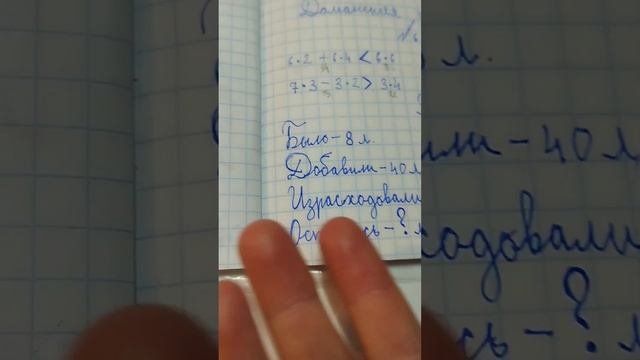 Домашняя
6·2 + 6·4 < 6·6
7·3 - 3·2 > 3·4
Было - 8 л.
Добавили - 40 л
Израсходовали
- ? л